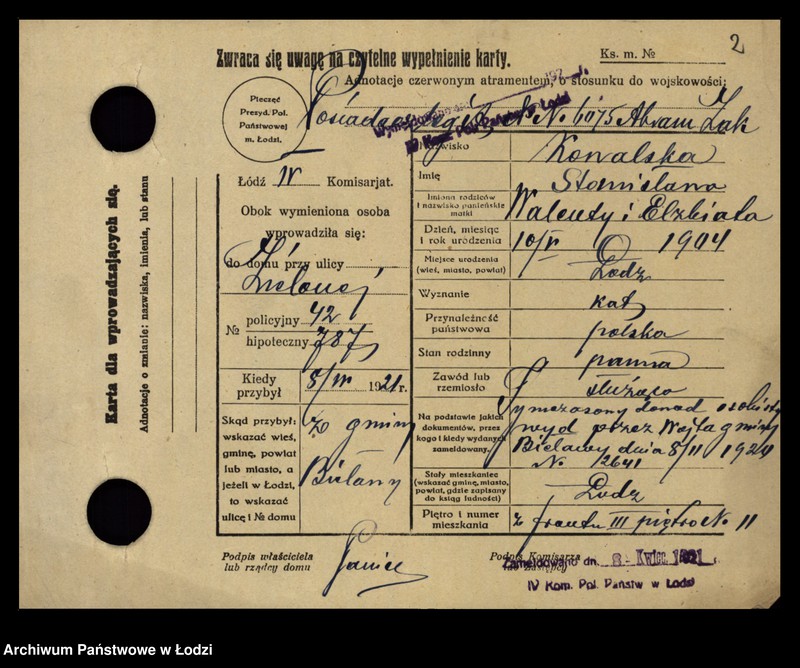 2
Zwraca się uwagę na czytelne wypełnienie karty.
Ks. m. №
Adnotacje czerwonym atramentem, o stosunku do wojskowości:
Pieczęć
Prezyd. Pol.
Państwowej
m. Łodzi.
№ 6075 Abram Żak
IV Kom. Pol. Państw. w Łodzi
Karta dla wprowadzających się.
Adnotacje o zmianie: nazwiska, imienia, lub stanu
Łódź IV Komisarjat.
Obok wymieniona osoba
wprowadziła się:
do domu przy ulicy
Zielonej
№ policyjny 42
hipoteczny 787
Kiedy przybył 8/IV 1921 r.
Skąd przybył:
wskazać wieś,
gminę, powiat
lub miasto, a
jeżeli w Łodzi,
to wskazać
ulicę i № domu
z gminy
Bielawy
Podpis właściciela
lub rządcy domu
Nazwisko Kowalska
Imię Stanisława
Imiona rodziców
i nazwisko panieńskie
matki
Walenty i Elżbieta
Dzień, miesiąc
i rok urodzenia
10/V 1904
Miejsce urodzenia
(wieś, miasto, powiat)
Łódz
Wyznanie kat
Przynależność
państwowa
polska
Stan rodzinny panna
Zawód lub
rzemiosło
służąca
Na podstawie jakich
dokumentów, przez
kogo i kiedy wydanych
zameldowany.
Tymczasowy dowod osobisty
wyd przez Wójta gminy
Bielawy dnia 8/II 1921
№ 2641
Stały mieszkaniec
(wskazać gminę, miasto,
powiat, gdzie zapisany
do ksiąg ludności)
Łodz
Piętro i numer
mieszkania
z frontu III piętro № 11
Podpis Komisarza
lub zastępcy
Zameldowano dn. 8 - Kwiec 1921 r.
IV Kom. Pol. Państw w Łodzi
Archiwum Państwowe w Łodzi